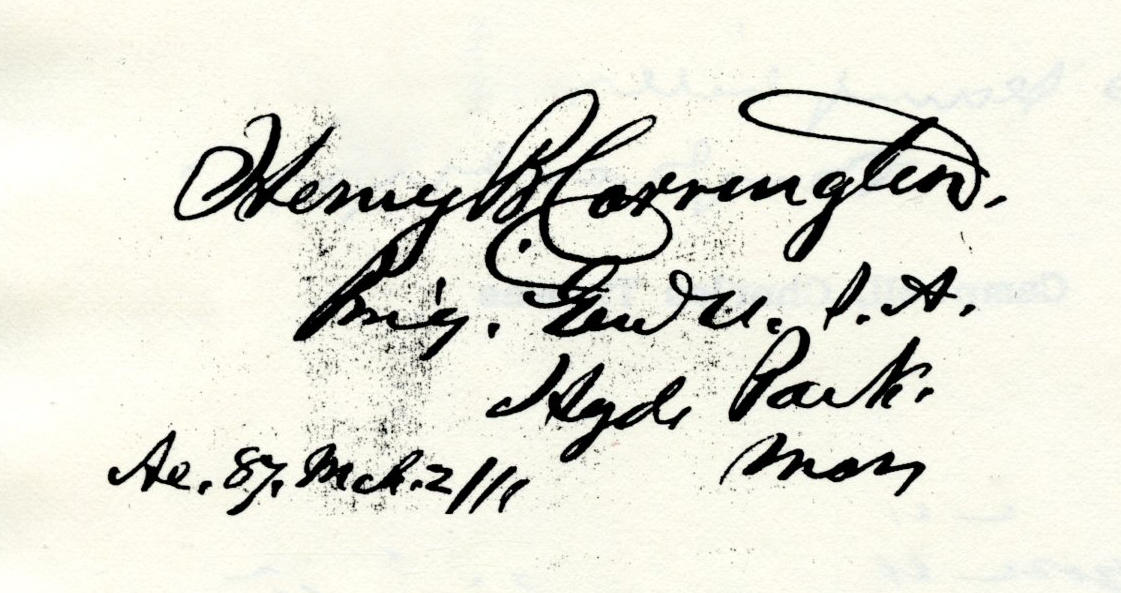 Henry B Carrington.
Brig. Genl U. S. A.
Hyde Park.
Mass
Ae. 87. Mch. 2/11